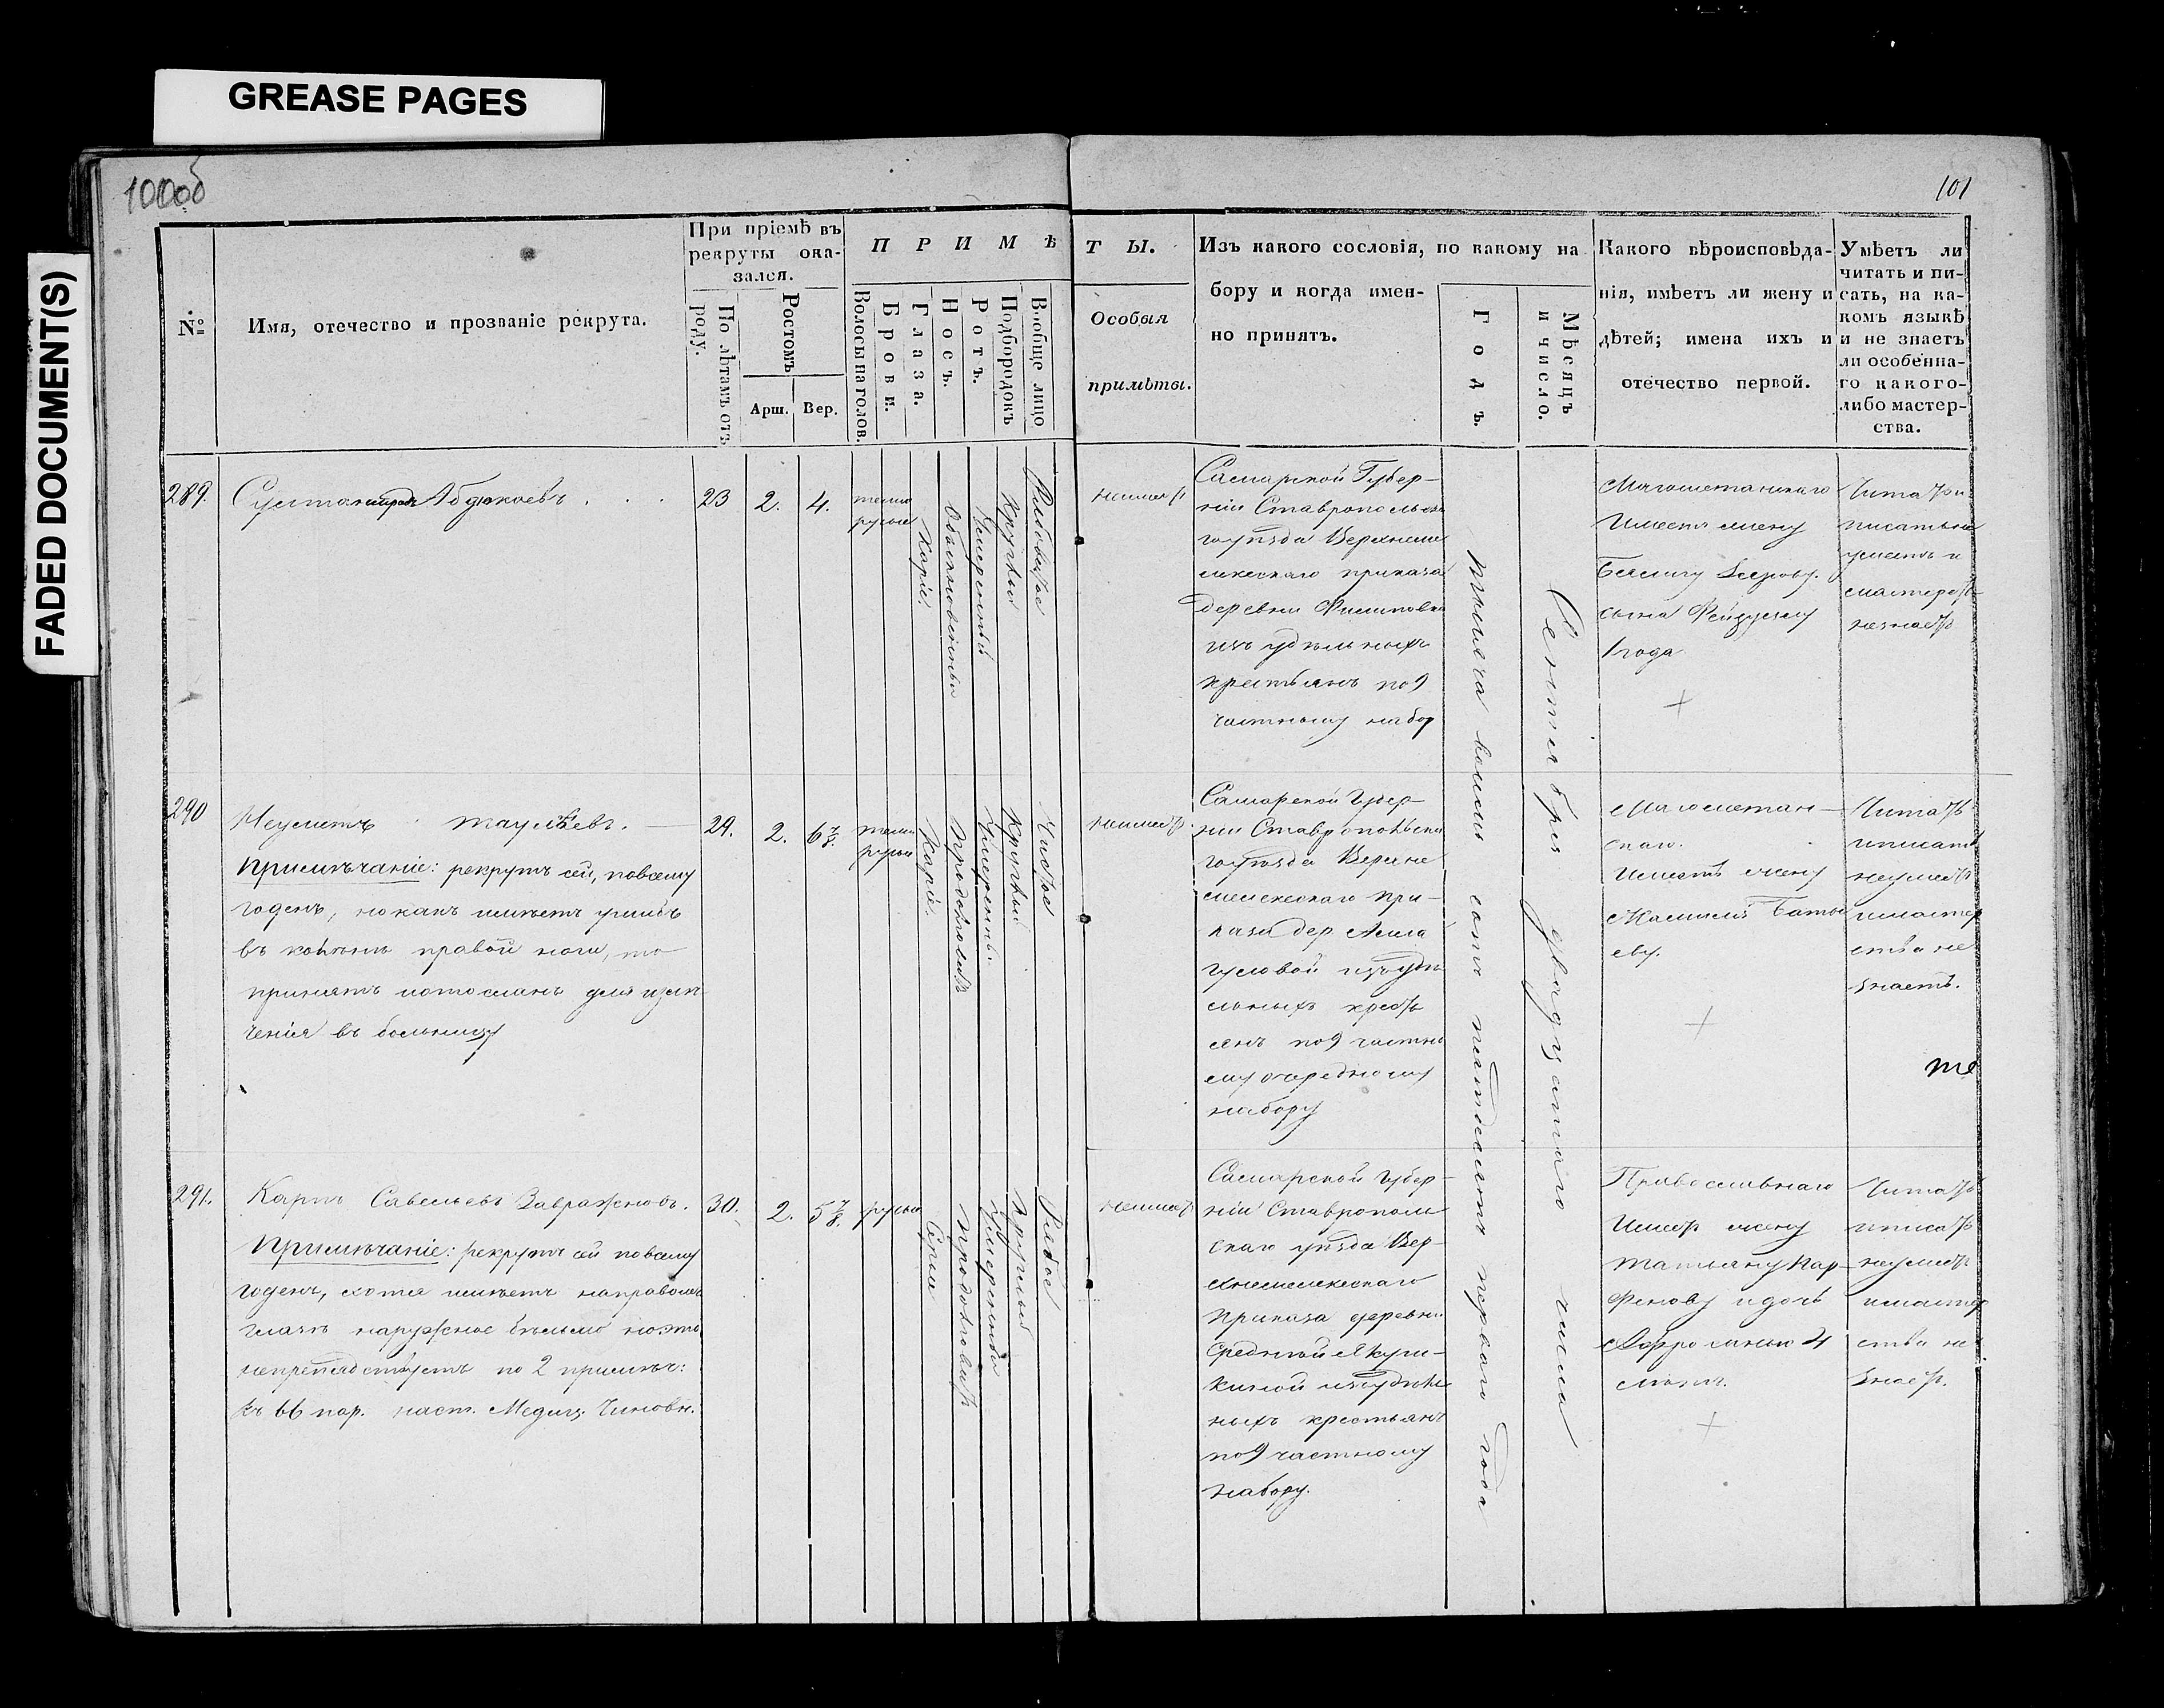 GREASE PAGES
FADED DOCUMENT(S)
100об
101
№
Имя, отечество и прозваніе рекрута.
При пріемѣ въ
рекруты ока-
зался.
По лѣтамъ отъ
роду.
Ростомъ
Арш.
Вер.
ПРИМѢ
ТЫ.
Волосы на голов.
Брови.
Глаза.
Носъ.
Ротъ.
Подбородокъ
Вообще лицо
Особыя
примѣты.
Изъ какого сословія, по какому на
бору и когда имен-
но принятъ.
Годъ.
Мѣсяцъ
и число.
Какого вѣроисповѣда-
нія, имѣетъ ли жену и
дѣтей; имена ихъ и
отечество первой.
Умѣетъ ли
читать и пи-
сать, на ка-
комъ языкѣ
и не знаетъ
ли особенна-
го какого-
либо мастер-
ства.
289.
23
2.
4.
темно
русые
Карiе.
Обыкновенный
Умеренный
Круглый
Рябоватое
неимеетъ
Самарской Губер-
ніи Ставропольска
го уѣзда
приказа
деревни Филиповки
изъ удѣльныхъ
крестьянъ по 9
частному набор
Магометанскаго
Имеетъ жену
сына
1 года
Читать и
писать не
умеетъ и
мастерств
незнаетъ
тысяча восемь сотъ пятдесятъ перваго года
Сентября двадцатаго числа
290
Примѣчаніе: рекрутъ сей, повсему
годенъ, но какъ имѣетъ ушибъ
въ колѣнѣ правой ноги, то
принятъ и отосланъ для излѣ
ченія въ больницу
29.
2.
6 7/8.
темно
русые
Карiе.
Продолговатъ
Умеренный.
Круглый
Чистое
неимеетъ.
Самарской Губер-
ніи Ставропольска
го уѣзда Верхне
при-
каза дер
изъ удѣ
льныхъ кресть
янъ по 9 частно
му очередному
набору
Магометан-
скаго.
Имеетъ жену
еву.
Читать
и писать
неумеетъ
и мастер
ства не
знаетъ.
те
291.
Карпъ Савельевъ Завражновъ.
Примѣчаніе: рекрутъ сей повсему
годенъ, хотя имѣетъ направомъ
глазѣ наружное бѣльмо но это
непрепядствуетъ по 2 примѣч:
къ 66 пар. наст. Медиц. Чиновн.
30.
2.
5 7/8.
русые
Серые
Продолговатъ
Умеренный
Круглый
Рябое
неимеетъ
Самарской Губер-
ніи Ставрополь
скаго уѣзда Вер-
Приказа деревни
Средней Якуш-
киной изъ удѣль
ныхъ крестьянъ
по 9 частному
набору.
Православнаго
Имеетъ жену
Татьяну Пар-
фенову и дочь
4
лѣтъ.
Читать
и писать
неумеетъ
и мастер
ства не
знаетъ.